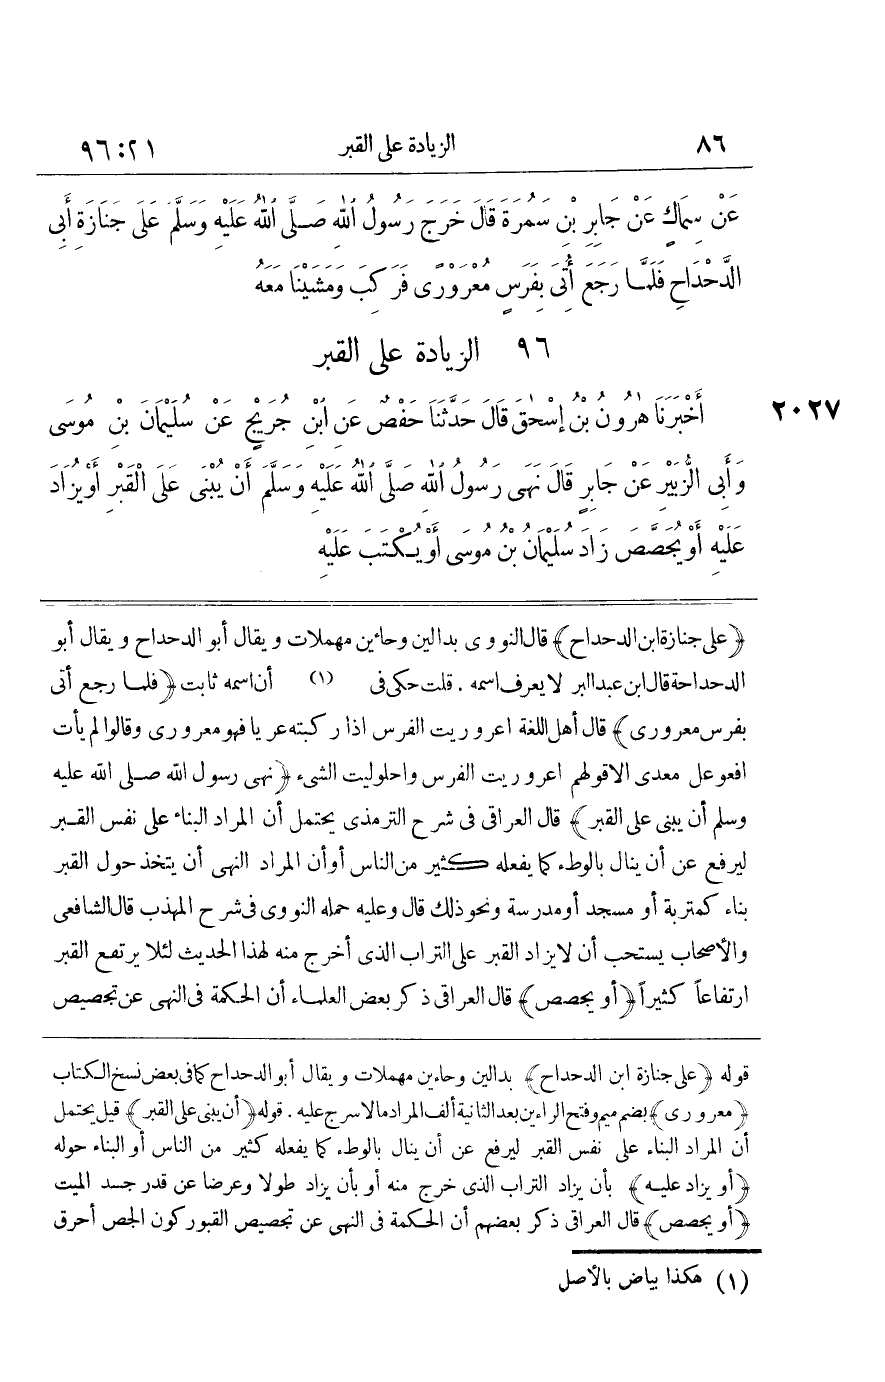 ٨٦ الزيادة على القبر ٢١ : ٩٦
عَنْ سِمَاكٍ عَنْ جَابِرِ بْنِ سَمُرَةَ قَالَ خَرَجَ رَسُولُ اللهِ صَلَّى اللهُ عَلَيْهِ وَسَلَّمَ عَلَى جَنَازَةِ أَبِى
الدَّحْدَاحِ فَلَمَّا رَجَعَ أُتِىَ بِفَرَسٍ مُعْرَوْرًى فَرَكِبَ وَمَشَيْنَا مَعَهُ
٩٦ الزيادة على القبر
٢٠٢٧ أَخْبَرَنَا هٰرُونُ بْنُ إِسْحٰقَ قَالَ حَدَّثَنَا حَفْصٌ عَنِ ابْنِ جُرَيْجٍ عَنْ سُلَيْمَانَ بْنِ مُوسَى
وَأَبِى الزُّبَيْرِ عَنْ جَابِرٍ قَالَ نَهَى رَسُولُ اللهِ صَلَّى اللهُ عَلَيْهِ وَسَلَّمَ أَنْ يُبْنَى عَلَى الْقَبْرِ أَوْ يُزَادَ
عَلَيْهِ أَوْ يُجَصَّصَ زَادَ سُلَيْمَانُ بْنُ مُوسَى أَوْ يُكْتَبَ عَلَيْهِ
﴿على جنازة ابن الدحداح﴾ قال النووى بدالين وحائين مهملات ويقال أبو الدحداح ويقال أبو
الدحداحة قال ابن عبد البر لا يعرف اسمه . قلت حكى فى (١) أن اسمه ثابت ﴿فلما رجع أتى
بفرس معرورى﴾ قال أهل اللغة اعروريت الفرس اذا ركبته عريا فهو معرورى وقالوا لم يأت
افعوعل معدى الا قولهم اعروريت الفرس واحلوليت الشىء ﴿نهى رسول الله صلى الله عليه
وسلم أن يبنى على القبر﴾ قال العراقى فى شرح الترمذى يحتمل أن المراد البناء على نفس القبر
ليرفع عن أن ينال بالوطء كما يفعله كثير من الناس أو أن المراد النهى أن يتخذ حول القبر
بناء كمتربة أو مسجد أو مدرسة ونحو ذلك قال وعليه حمله النووى فى شرح المهذب قال الشافعى
والأصحاب يستحب أن لا يزاد القبر على التراب الذى أخرج منه لهذا الحديث لئلا يرتفع القبر
ارتفاعاً كثيراً ﴿أو يجصص﴾ قال العراقى ذكر بعض العلماء أن الحكمة فى النهى عن تجصيص
قوله ﴿على جنازة ابن الدحداح﴾ بدالين وحاءين مهملات ويقال أبو الدحداح كما فى بعض نسخ الكتاب
﴿معرورى﴾ بضم ميم وفتح الراءين بعد الثانية ألف المراد ما لا سرج عليه . قوله ﴿أن يبنى على القبر﴾ قيل يحتمل
أن المراد البناء على نفس القبر ليرفع عن أن ينال بالوطء كما يفعله كثير من الناس أو البناء حوله
﴿أو يزاد عليه﴾ بأن يزاد التراب الذى خرج منه أو بأن يزاد طولا وعرضا عن قدر جسد الميت
﴿أو يجصص﴾ قال العراقى ذكر بعضهم أن الحكمة فى النهى عن تجصيص القبور كون الجص أحرق
(١) هكذا بياض بالأصل